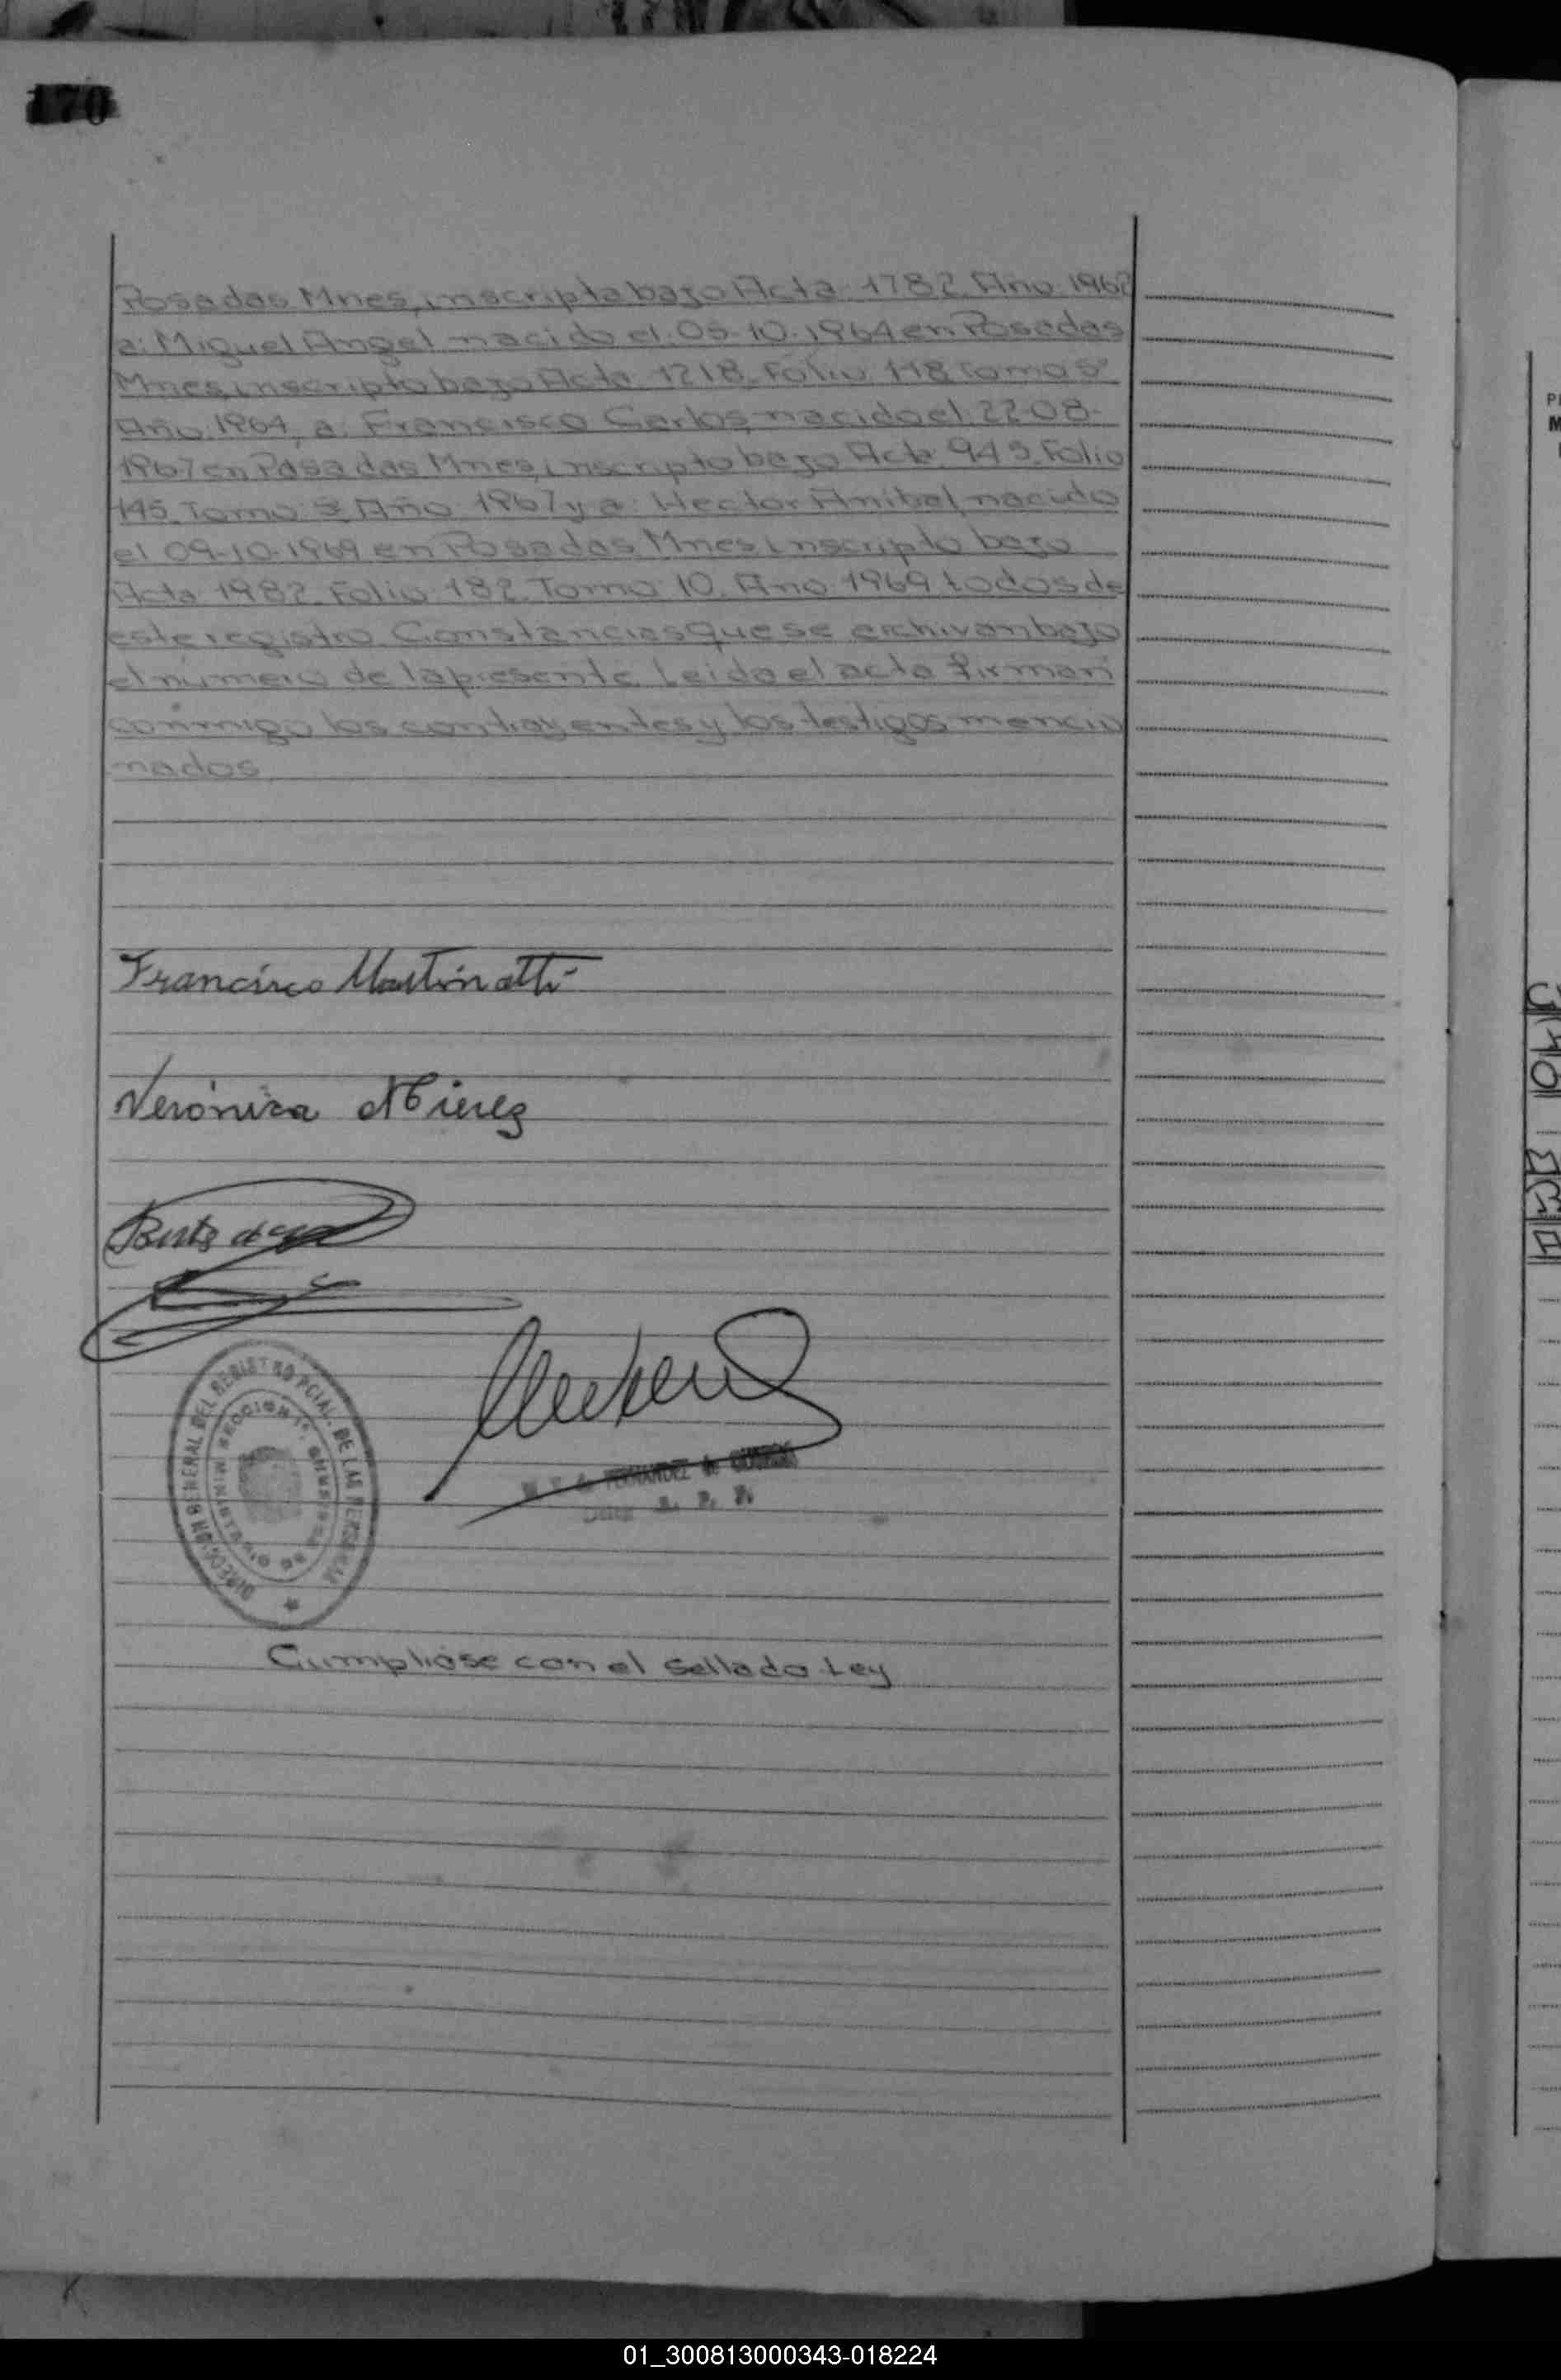 170
Posadas Mnes, inscripta bajo Acta: 1782. Año: 1962
a: Miguel Angel nacido el: 05-10-1964 en Posadas
Mnes inscripto bajo Acta: 1218. Folio: 118 Tomo 5º
Año: 1964, a: Francisco Carlos nacido el: 22-08-
1967 en Posadas Mnes, inscripto bajo Acta: 945. Folio
145. Tomo: 5º Año: 1967 y a: Hector Anibal, nacido
el 09-10-1969 en Posadas Mnes inscripto bajo
Acta: 1982. Folio: 182. Tomo: 10. Año: 1969 todos de
este registro. Constancias que se archivan bajo
el número de la presente. Leida el acta firman
conmigo los contrayentes y los testigos mencio
nados
Francisco Martinatti
Verónica Mierez
DIRECCION GENERAL DEL REGISTRO PCIAL. DE LAS PERSONAS
FERNANDEZ de
R. P. P.
Cumpliose con el sellado Ley
01_300813000343-018224